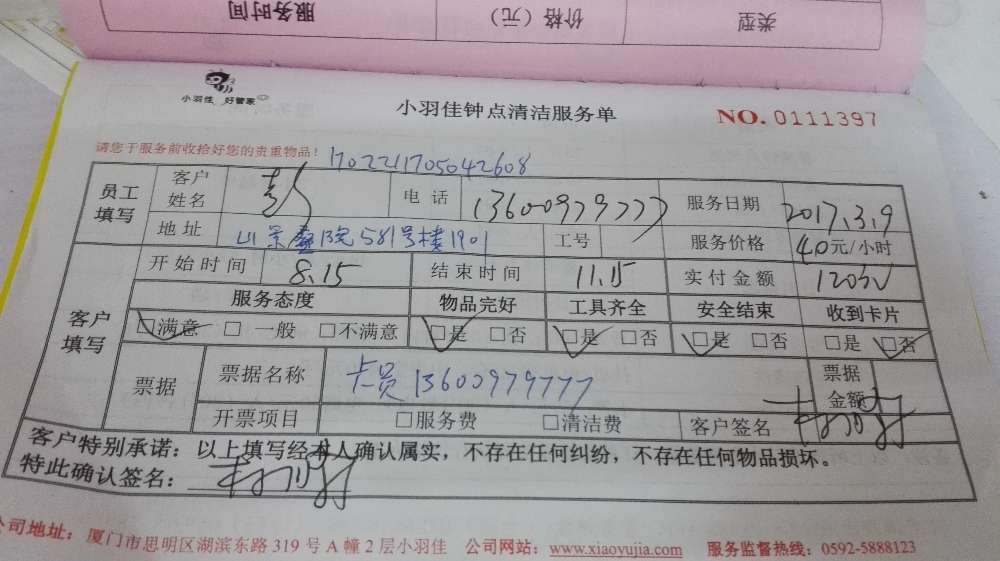 类型 价格（元） 服务时间
小羽佳 好管家
小羽佳钟点清洁服务单
NO. 0111397
请您于服务前收拾好您的贵重物品！ 170221170504 2608
员工填写 客户姓名 电话 13600979777 服务日期 2017.3.9
地址 山景 院581号楼1901 工号 服务价格 40元/小时
开始时间 8.15 结束时间 11.15 实付金额 120元
客户填写 服务态度 物品完好 工具齐全 安全结束 收到卡片
□满意 □一般 □不满意 □是 □否 □是 □否 □是 □否 □是 □否
票据 票据名称 卡员13600979777 票据金额
开票项目 □服务费 □清洁费 客户签名
客户特别承诺：以上填写经本人确认属实，不存在任何纠纷，不存在任何物品损坏。
特此确认签名：
公司地址：厦门市思明区湖滨东路319号A幢2层小羽佳 公司网站：www.xiaoyujia.com 服务监督热线：0592-5888123